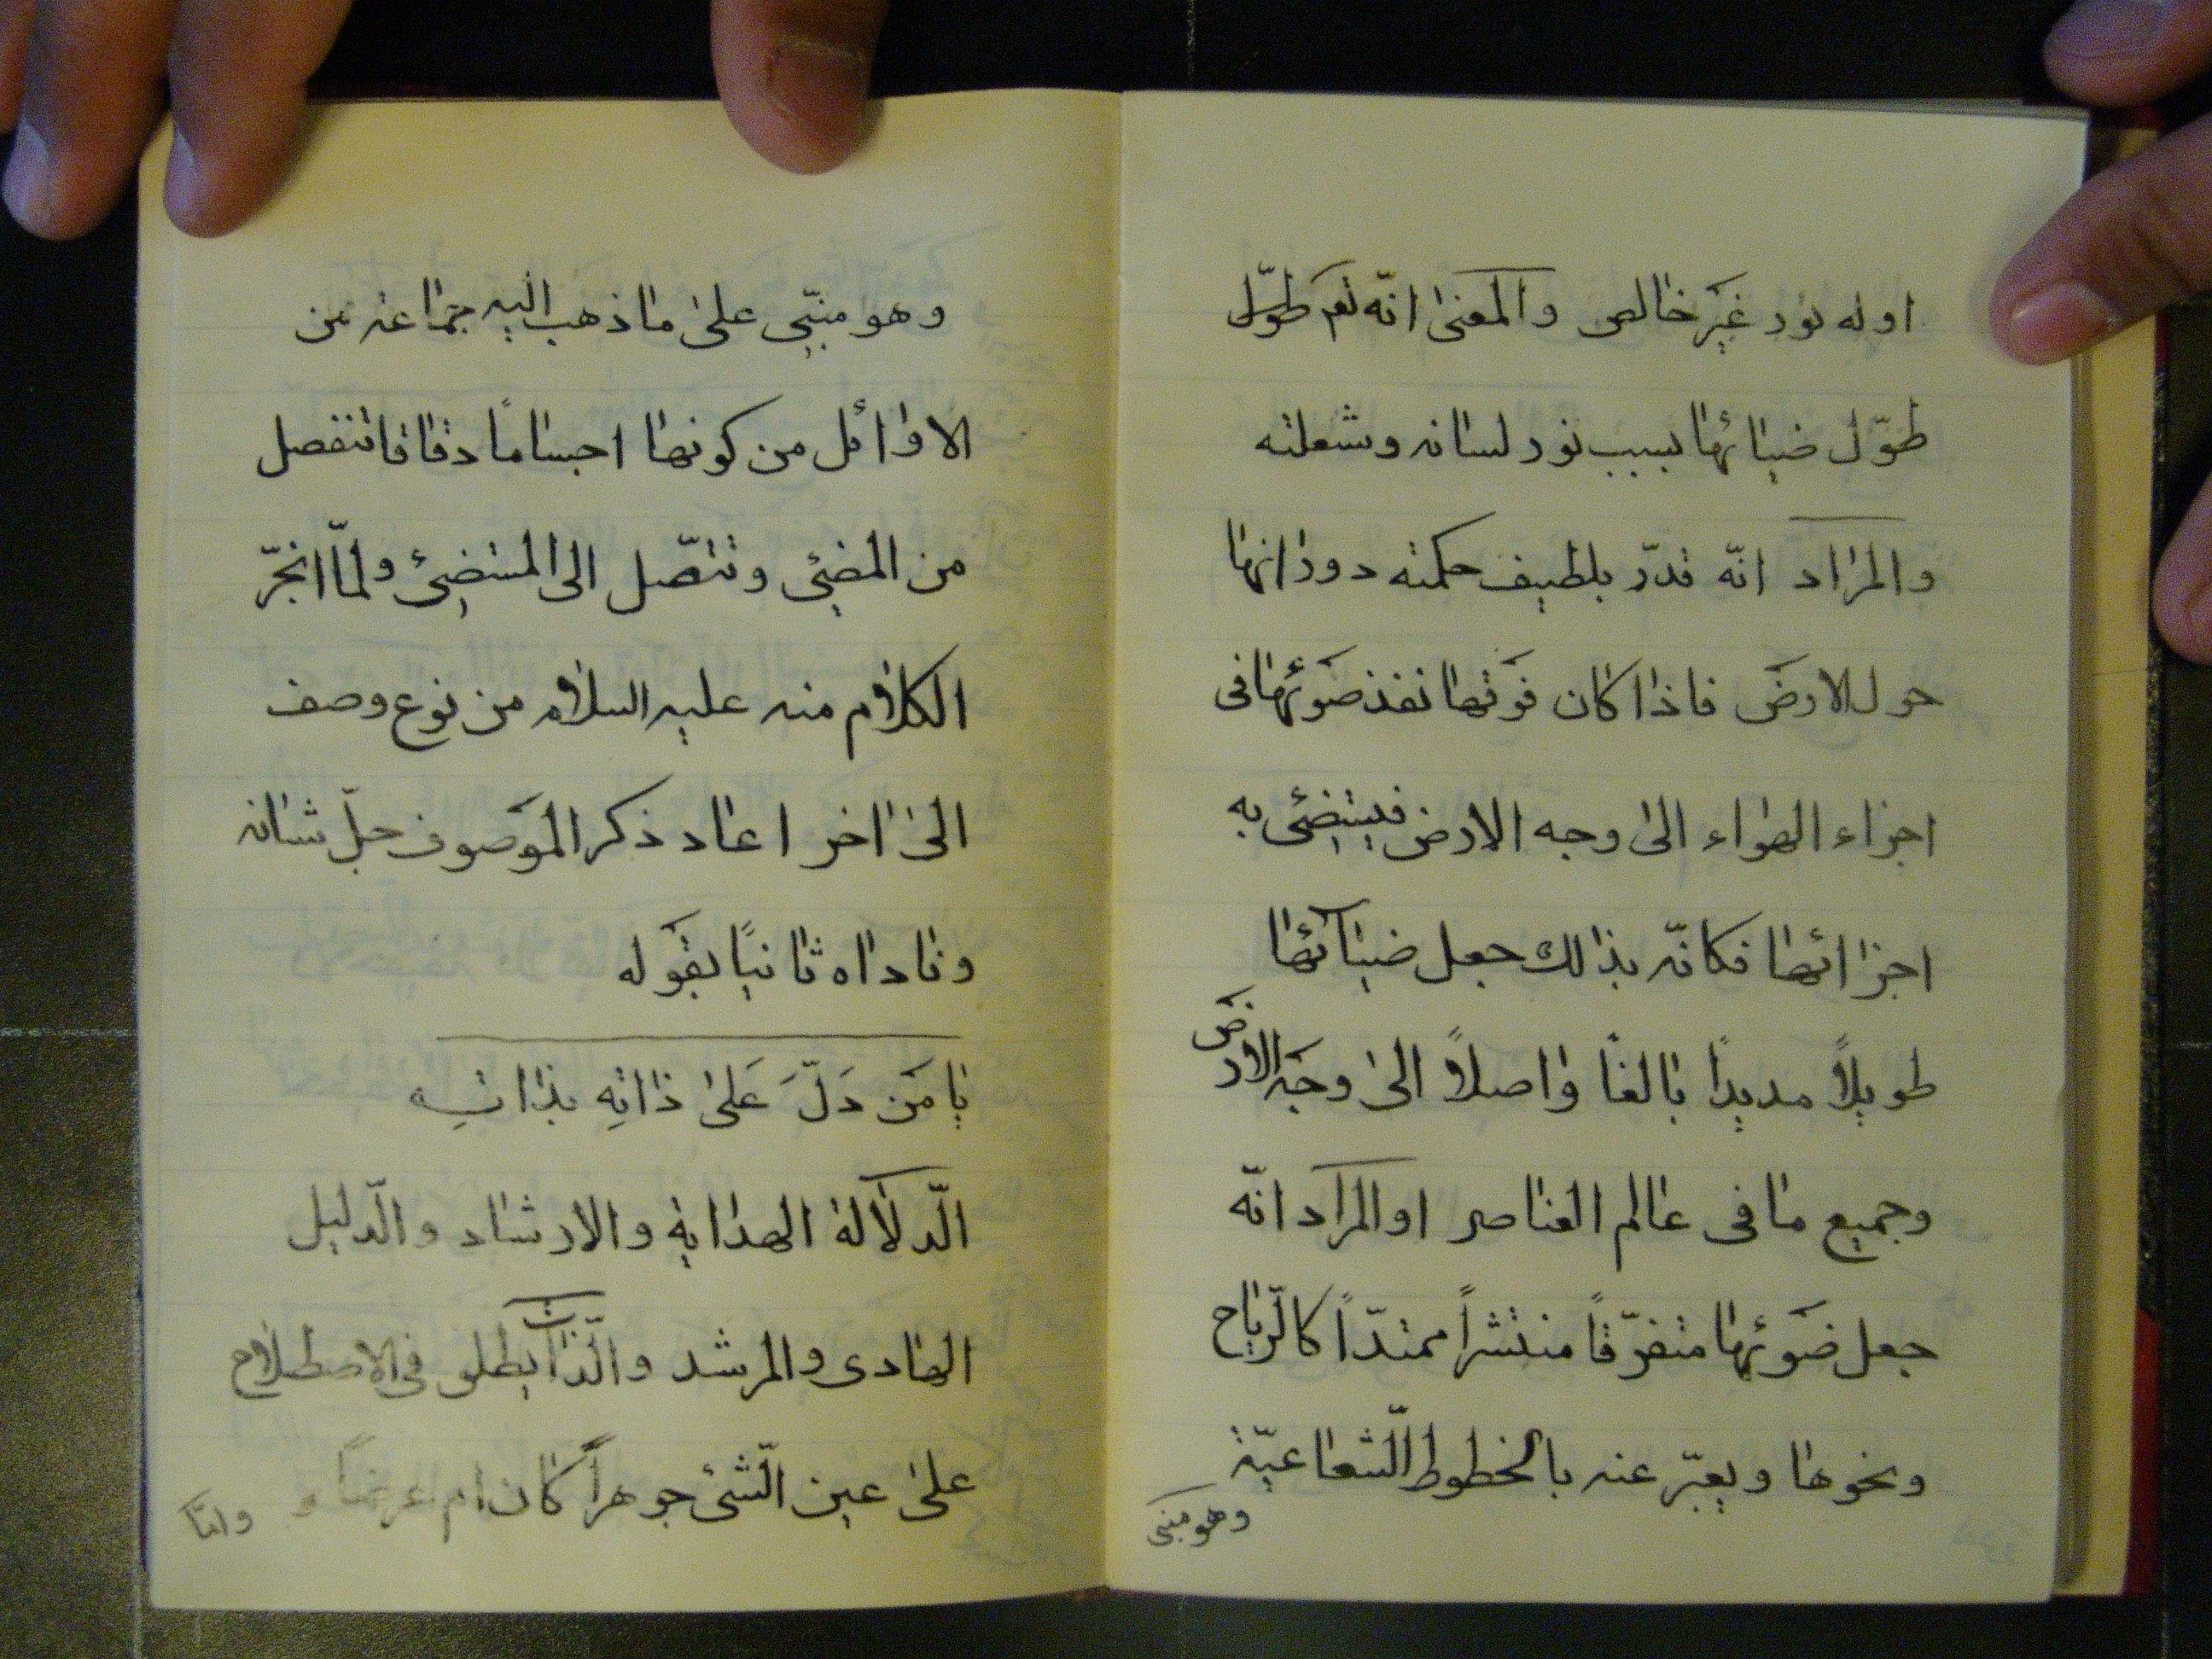 او له نور غير خالص والمعنى انّه نعم طوّل
طوّل ضيائها بسبب نور لسانه وشعلته
والمراد انّه قدّر بلطيف حكمته دورانها
حول الارض فاذا كان فوقها نفذ ضوئها فى
اجزاء الهواء الى وجه الارض فيستضئ به
اجزائها فكانّه بذالك جعل ضيائها
طويلاً مديداً بالغاً واصلاً الى وجه الارض
وجميع ما فى عالم العناصر او المراد انّه
جعل ضوئها متفرّقاً منتشراً ممتدّاً كالرّياح
ونحوها ويعبّر عنه بالخطوط الشّعاعيّة
وهو مبنى
وهو مبنّى على ما ذهب اليه جماعة من
الاوائل من كونها اجساماً دقاقا تنفصل
من المضئ وتتصّل الى المستضئ ولمّا انجرّ
الكلام منه عليه السلام من نوع وصف
الى اخر اعاد ذكر الموصوف جلّ شانه
وناداه ثانياً بقوله
يٰا مَن دَلّ عَلىٰ ذٰاتِهِ بذٰاتِهِ
الّدلالة الهداية والارشاد والّدليل
الهادى والمرشد والّذات يطلق فى الاصطلاح
على عين الّشئ جوهراً كان ام عرضاً و
وامّا